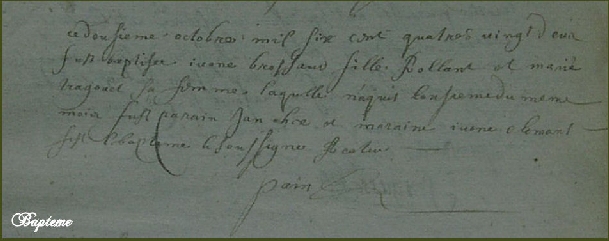 ce dousieme octobre mil six cent quatres vingt deux
fust baptisee ivene brossaus fille Rollant et marie
tragouet sa femme laquelle naquit lonsieme du meme
mois fust parain Jan et maraine ivene clement
fist le bapteme le soussigne Recteur
pain
Bapteme